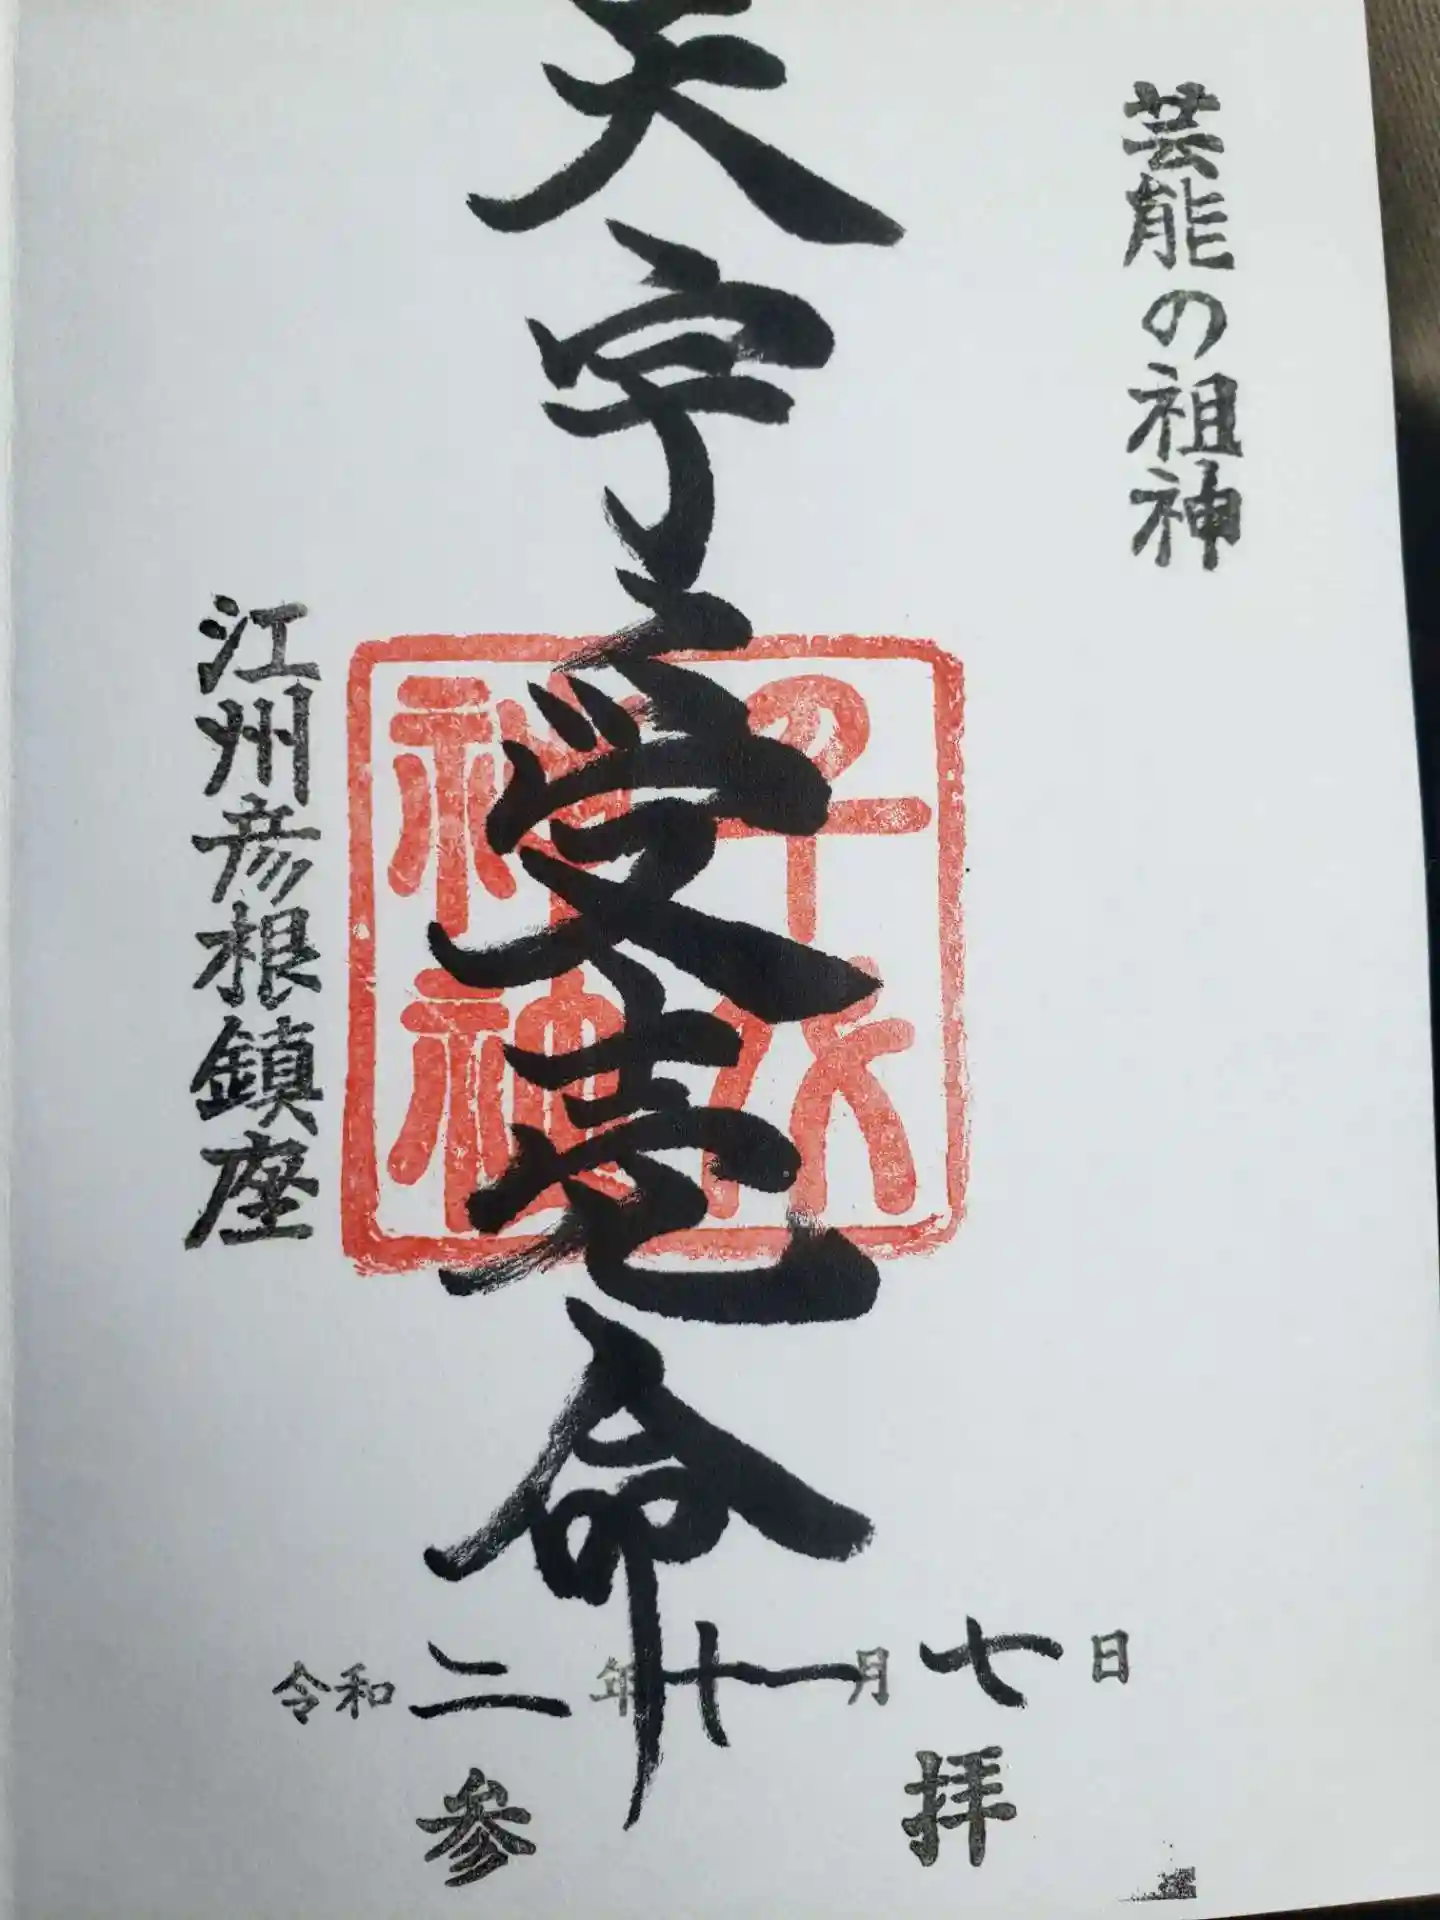 芸能の祖神
天宇受売命
千代
神社
江州彦根鎮座
令和二年十一月七日
参拝